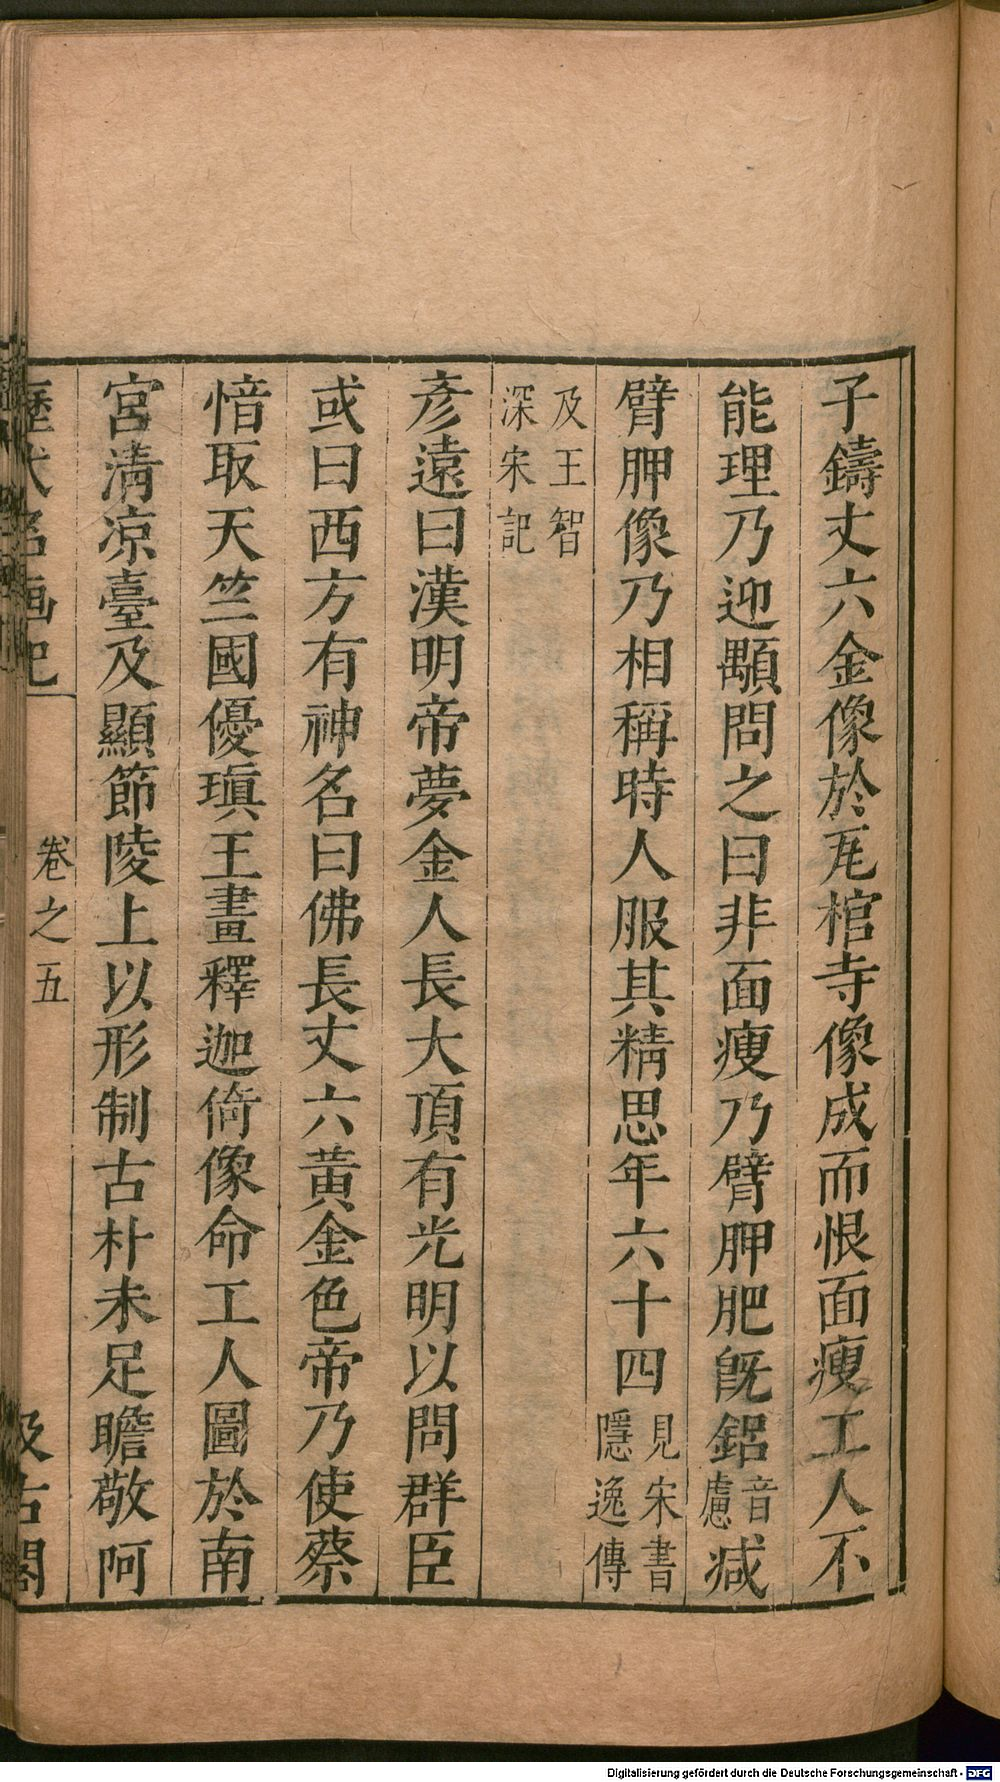 子鑄丈六金像於瓦棺寺像成而恨面瘦工人不
能理乃迎顒問之曰非面瘦乃臂胛肥既鋁音慮減
臂胛像乃相稱時人服其精思年六十四見宋書隱逸傳
及王智深宋記
彥遠曰漢明帝夢金人長大頂有光明以問群臣
或曰西方有神名曰佛長丈六黃金色帝乃使蔡
愔取天竺國優瑱王畫釋迦倚像命工人圖於南
宮清凉臺及顯節陵上以形制古朴未足瞻敬阿
歷代名画記 卷之五 汲古閣
Digitalisierung gefördert durch die Deutsche Forschungsgemeinschaft - DFG